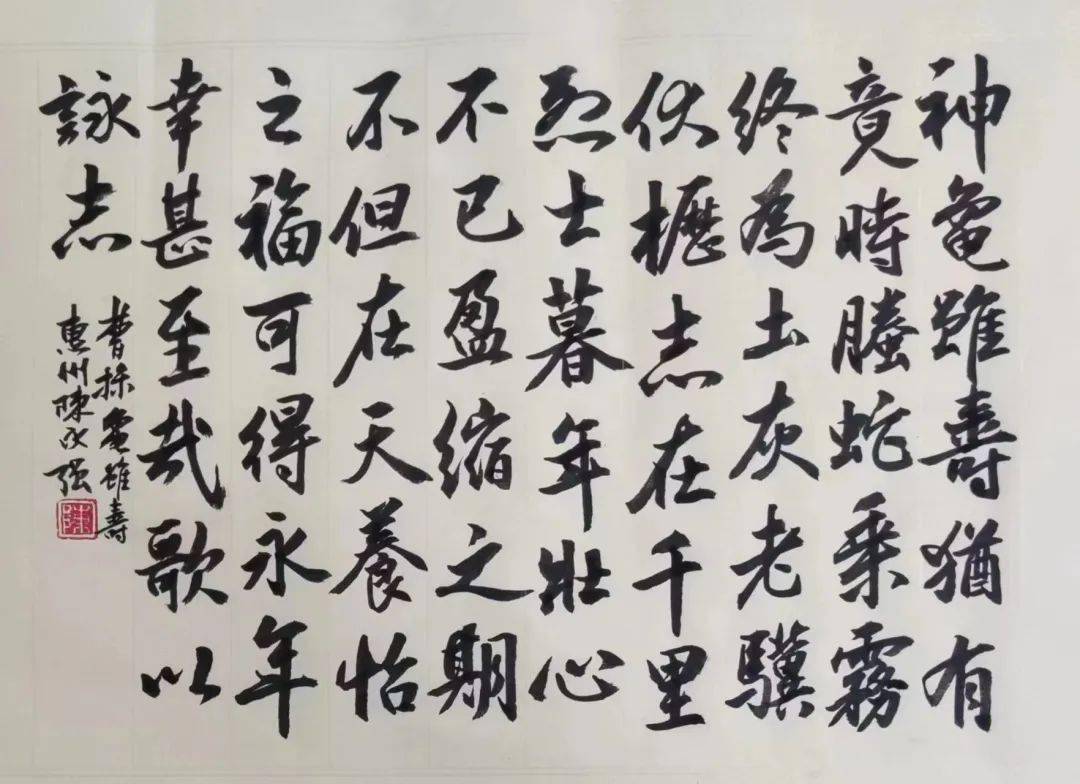 神龜雖壽猶有
竟時螣蛇乘霧
終為土灰老驥
伏櫪志在千里
烈士暮年壯心
不已盈縮之期
不但在天養怡
之福可得永年
幸甚至哉歌以
詠志
曹操龜雖壽
惠州陳永强